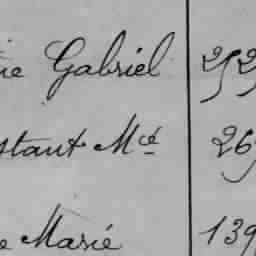 ie Gabriel 252
stant Mcé 269
e Marie 139